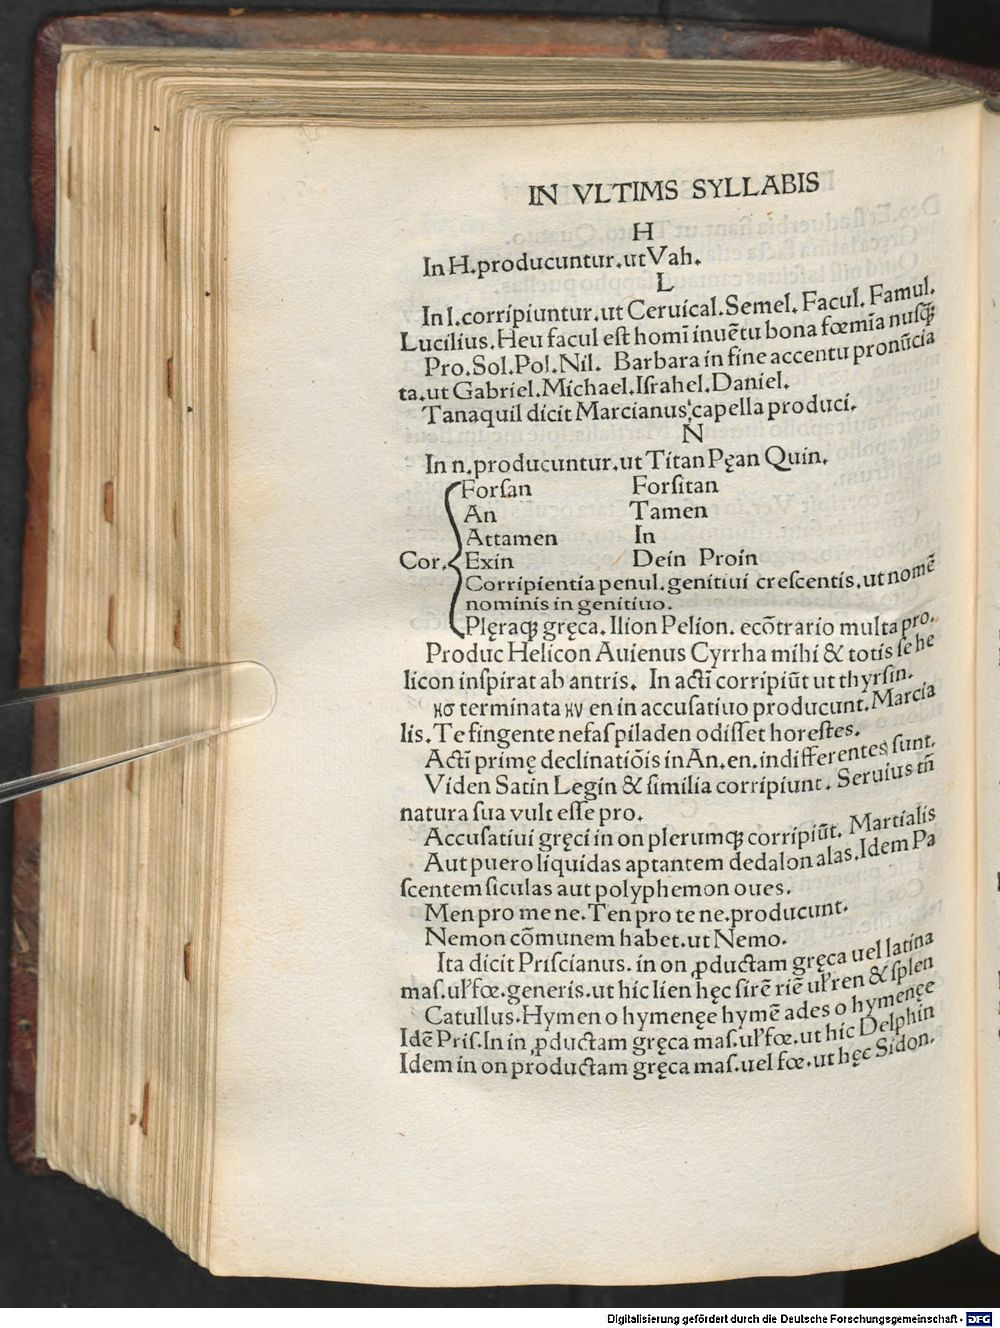 IN VLTIMS SYLLABIS
H
In H.producuntur.ut Vah.
L
In l.corripiuntur.ut Ceruical.Semel.Facul.Famul.
Lucilius.Heu facul eſt homī inuētu bona fœmīa nuſꝗ̃
Pro.Sol.Pol.Nil. Barbara in fine accentu pronūcia
ta.ut Gabriel.Michael.Iſrahel.Daniel.
Tanaquil dicit Marcianus capella produci.
N
In n.producuntur.ut Titan Pęan Quin.
Forſan Forſitan
An Tamen
Attamen In
Cor. Exin Dein Proin
Corripientia penul.genitiui creſcentis.ut nomē
nominis in genitiuo.
Plęraqꝫ gręca.Ilion Pelion.ecōtrario multa pro.
Produc Helicon Auienus Cyrrha mihi & totis ſe he
licon inſpirat ab antris. In actī corripiūt ut thyrſin.
ησ terminata ην en in accuſatiuo producunt.Marcia
lis.Te fingente nefas piladen odiſſet horeſtes.
Actī primę declinatiōis in An.en.indifferentes ſunt.
Viden Satin Legin & ſimilia corripiunt. Seruius tñ
natura ſua vult eſſe pro.
Accuſatiui gręci in on plerumqꝫ corripiūt. Martialis
Aut puero liquidas aptantem dedalon alas.Idem Pa
ſcentem ſiculas aut polyphemon oues.
Men pro me ne.Ten pro te ne.producunt.
Nemon cōmunem habet.ut Nemo.
Ita dicit Priſcianus.in on ꝓductam gręca uel latina
maſ.uł fœ.generis.ut hic lien hęc ſirē riē uł ren & ſplen
Catullus.Hymen o hymenęe hymē ades o hymenęe
Idē Priſ.In in ꝓductam gręca maſ.uł fœ.ut hic Delphin
Idem in on productam gręca maſ.uel fœ.ut hęc Sidon.
Digitalisierung gefördert durch die Deutsche Forschungsgemeinschaft - DFG